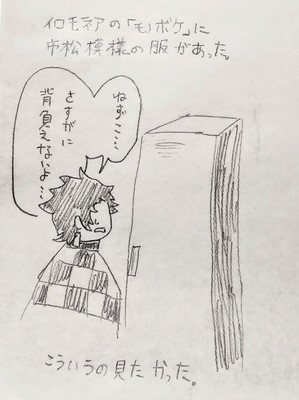 イロモネアの「モノボケ」に
市松模様の服があった。
ねずこ…
さすがに
背負えないよ…
こういうの見たかった。